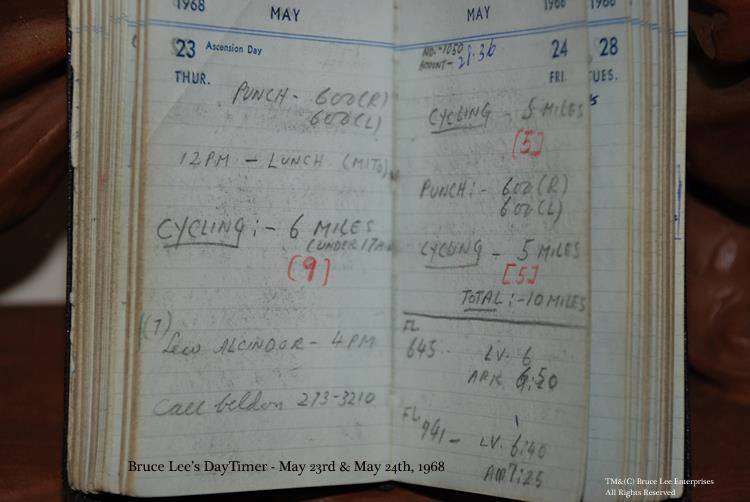 1968
MAY
23 Ascension Day
THUR.
PUNCH - 600(R)
600(L)
12PM - LUNCH (MITO)
CYCLING :- 6 MILES
(UNDER 17
[9]
(7)
Lew ALCINDOR - 4 PM
Call beldon 273-3210
MAY
1968
NO.-1050
AMOUNT- 28.36
24
FRI.
CYCLING - 5 MILES
[5]
PUNCH:- 600(R)
600(L)
CYCLING - 5 MILES
[5]
TOTAL :- 10 MILES
FL
645 - LV. 6
ARR 6:50
FL
941 - LV. 6:40
ARR 7:25
1968
28
TUES.
Bruce Lee's DayTimer - May 23rd & May 24th, 1968
TM&(C) Bruce Lee Enterprises
All Rights Reserved